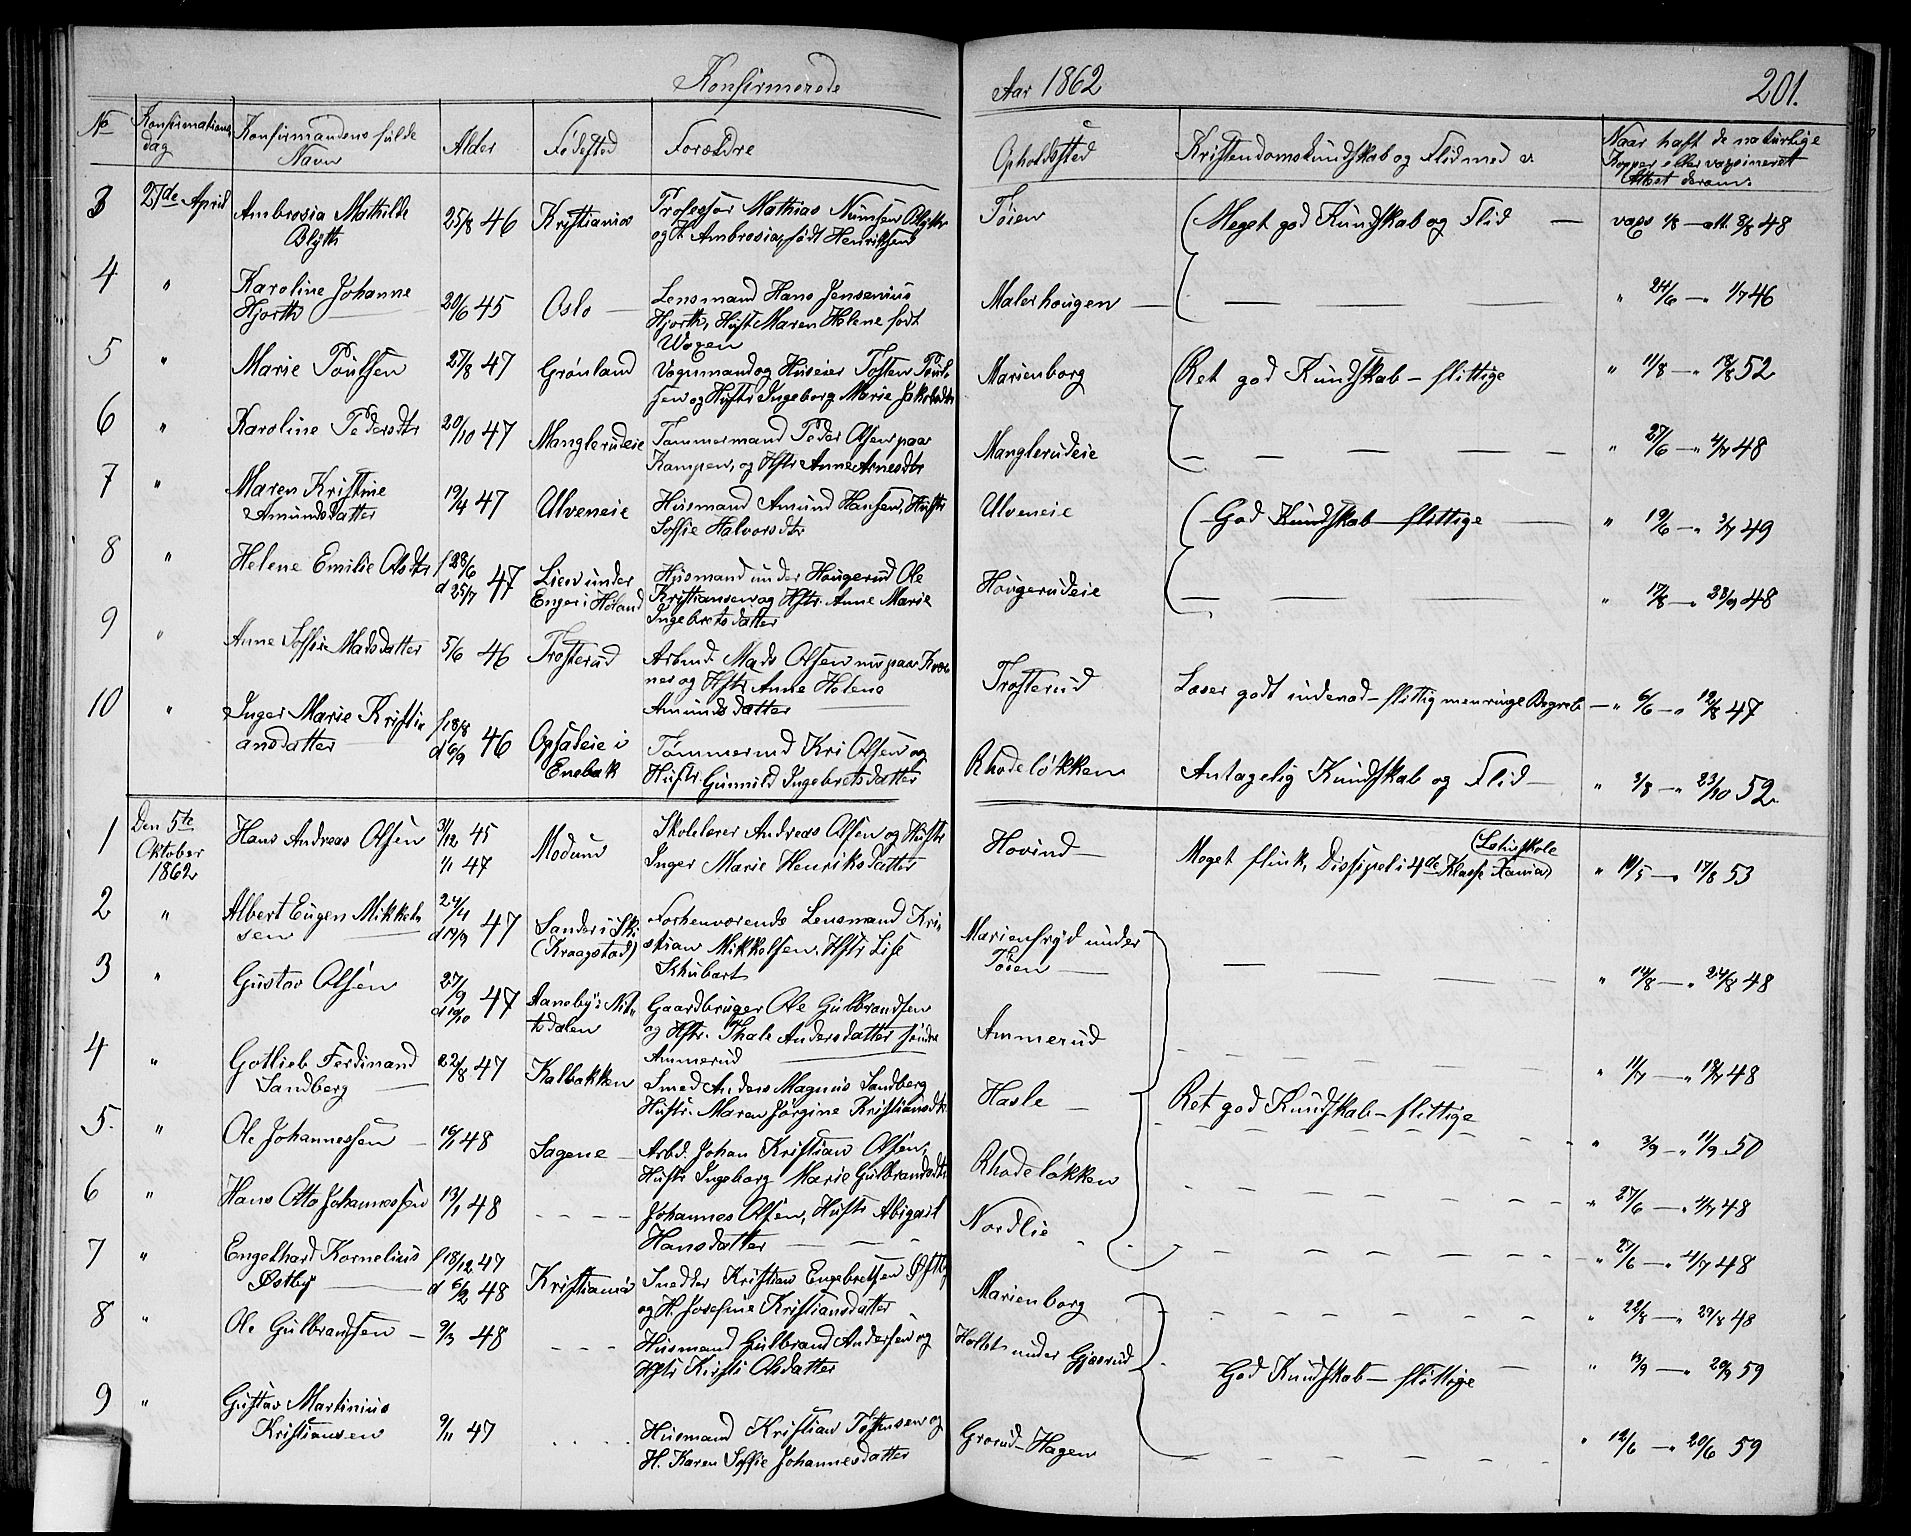 Konfirmerede Aar 1862 201.
No Konfirmations dag Konfirmandens fulde Navn Alder Fødested Forældre Opholdssted Kristendomskundskab og Flid med v. Naar haft de naturlige Kopper eller vaxineret Attest derom.
3 27de April Ambrosia Mathilde 25/8 46 Kristiania Professor Mathias Numsen Blytt Tøien Meget god Kundskab og Flid — vaxs 1/8 — att. 8/8 48
Blytt og H. Ambrosia, født Henriksen
4 " Karoline Johanne 20/6 45 Oslo — Lensmand Hans Jensenius Malerhougen — — — — — " 24/6 — " 1/7 46
Hjorth Hjorth, Hust Maren Helene født
Wogen
5 " Marie Poulsen 27/8 47 Grønland Vognmand og Huseier Tosten Poul- Marienborg Ret god Kundskab — flittige " 11/8 — " 18/8 52
sen og Hustr Ingeborg Marie Jakobsdtr
6 " Karoline Pedersdtr 20/10 47 Manglerudeie Tømmermand Peder Olsen paa Manglerudeie — — — — — " 27/6 — " 4/7 48
Kampen, og Hstr Anne Arnesdtr
7 " Maren Kristine 19/4 47 Ulveneie Husmand Amund Hansen, Hustr Ulveneie God Kundskab — flittige — " 19/6 — " 3/7 49
Amundsdatter Soffie Halvorsdtr
8 " Helene Emilie Olsdtr f 28/6 d 25/7 47 Lien under Husmand under Hougerud Ole Hougerudeie — — — — " 17/8 — " 23/9 48
Enger i Høland Kristiansen og Hstr. Anne Marie
Ingebretsdatter
9 " Anne Soffie Madsdatter 5/6 46 Trosterud Arbmd. Mads Olsen nu paa Kvær- Trosterud Læser godt indenad — flittig men ringe Begreb — " 6/6 — " 12/8 47
ner og Hstr Anne Helene
Amundsdatter
10 " Inger Marie Kristi- f 18/8 d 6/9 46 Opsaleie i Tømmermd Kri Olsen og Rhodeløkken Antagelig Kundskab og Flid — " 3/8 — " 23/10 52
ansdatter Enebak Hustr. Gunnild Ingebretsdatter
1 Den 5te Hans Andreas Olsen 31/12 45 Modum Skolelærer Andreas Olsen og Hustr Hovind — Meget flink, Dissipel i 4de Klasse Xania Latinskole " 10/5 — " 17/8 53
Oktober 1/1 47 Inger Marie Henriksdatter
1862
2 " Albert Eugen Mikkel- 24/4 d 19/9 47 Sander i Ski Forhenværende Lensmand Kri- Marienfryd under — — — — " 14/8 — " 24/8 48
sen (Kraagstad) stian Mikkelsen, Hstr Lise Tøien —
Schubart
3 " Gustav Olsen 27/9 d 10/10 47 Aaneby i Nit- Gaardbruger Ole Gulbrandsen Ammerud — — — — " 11/7 — " 18/7 48
tedalen og Hstr. Thale Andersdatter søndre
Ammerud
4 " Gotlieb Ferdinand 22/8 47 Kalbakken Smed Anders Magnus Sandberg Hasle — Ret god Kundskab — flittige " 3/9 — " 11/9 50
Sandberg Hustr. Maren Jørgine Kristiansdtr
5. " Ole Johannessen — 16/1 48 Sagene — Arbd. Johan Kristian Olsen, Rhodeløkken — — — — " 27/6 — " 4/7 48
Hustr Ingeborg Marie Gulbrandsdtr
6 " Hans Otto Johannessen 13/1 48 — — — Johannes Olsen, Hustr Abigael Nordlie — — — — " 27/6 — " 4/7 48
Hansdatter —
7 " Engelhard Kornelius f 18/12 47 Kristiania Snedker Kristian Engebretsen Østby Marienborg — — — — " 22/8 — " 29/8 48
Østby d 6/2 48 og H. Josefine Kristiansdatter
8 " Ole Gulbrandsen — 9/3 48 — — — Husmand Gulbrand Andersen og Holtet under Gjæsrud God Kundskab — flittige " 13/9 — " 20/9 59
Hstr Kirsti Olsdatter
9 " Gustav Martinius 9/11 47 . . . . Husmand Kristian Tostensen og Grorud-Hagen — — — — " 12/6 — " 20/6 59
Kristiansen H. Karen Soffie Johannesdatter